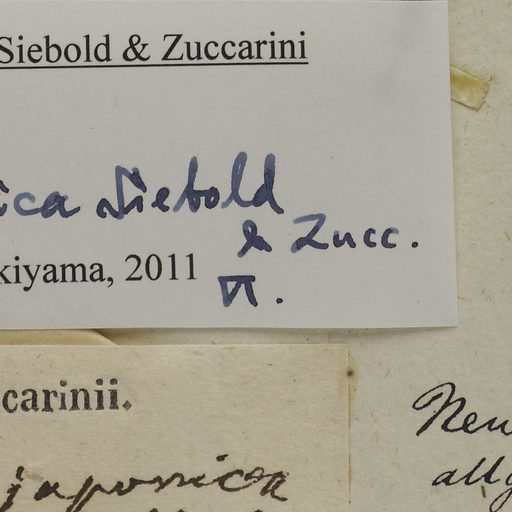 Siebold & Zuccarini
ica Siebold
& Zucc.
kiyama, 2011
VI.
carinii.
japonica
Neu
allg